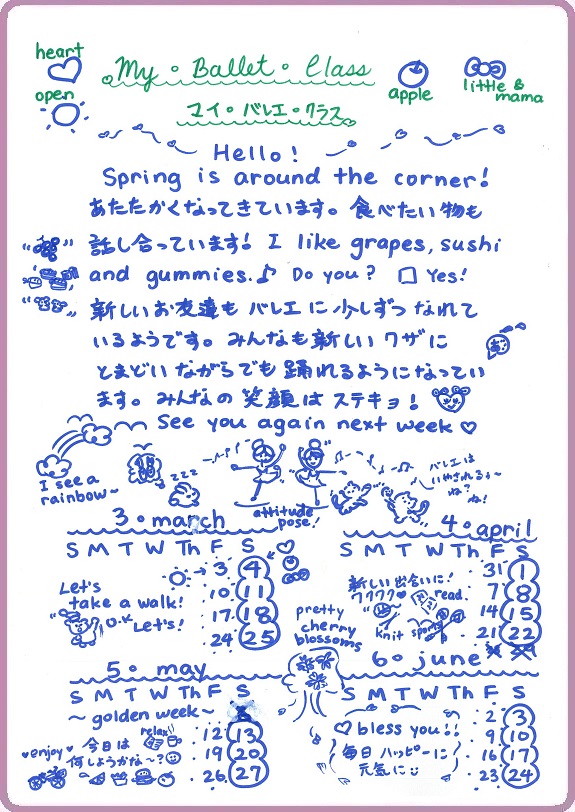 heart
My・Ballet・Class
open
apple
little & mama
マイ・バレエ・クラス
Hello!
Spring is around the corner!
あたたかくなってきています。食べたい物も
話し合っています! I like grapes, sushi
and gummies.♪ Do you? □ Yes!
新しいお友達も バレエ に 少しずつ なれて
いるようです。みんなも新しい ワザに
とまどい ながらでも 踊れるようになってい
ます。みんなの 笑顔は ステキョ!
See you again next week♡
I see a
rainbow~
zzz
attitude
pose!
バレエは
いやされる~
ね?
ね!
3・march
S M T W Th F S
3 4
10 11
17 18
24 25
Let's
take a walk!
O.K
Let's!
4・april
S M T W Th F S
31 1
7 8
14 15
21 22
新しい出合いに!
ワクワク♡
read.
knit
sports
pretty
cherry
blossoms
5・may
S M T W Th F S
~golden week~
12 13
19 20
26 27
relax!
♡enjoy♡
今日は
何しようかな~?
6・june
S M T W Th F S
2 3
9 10
16 17
23 24
♡bless you!!
毎日 ハッピーに
元気に